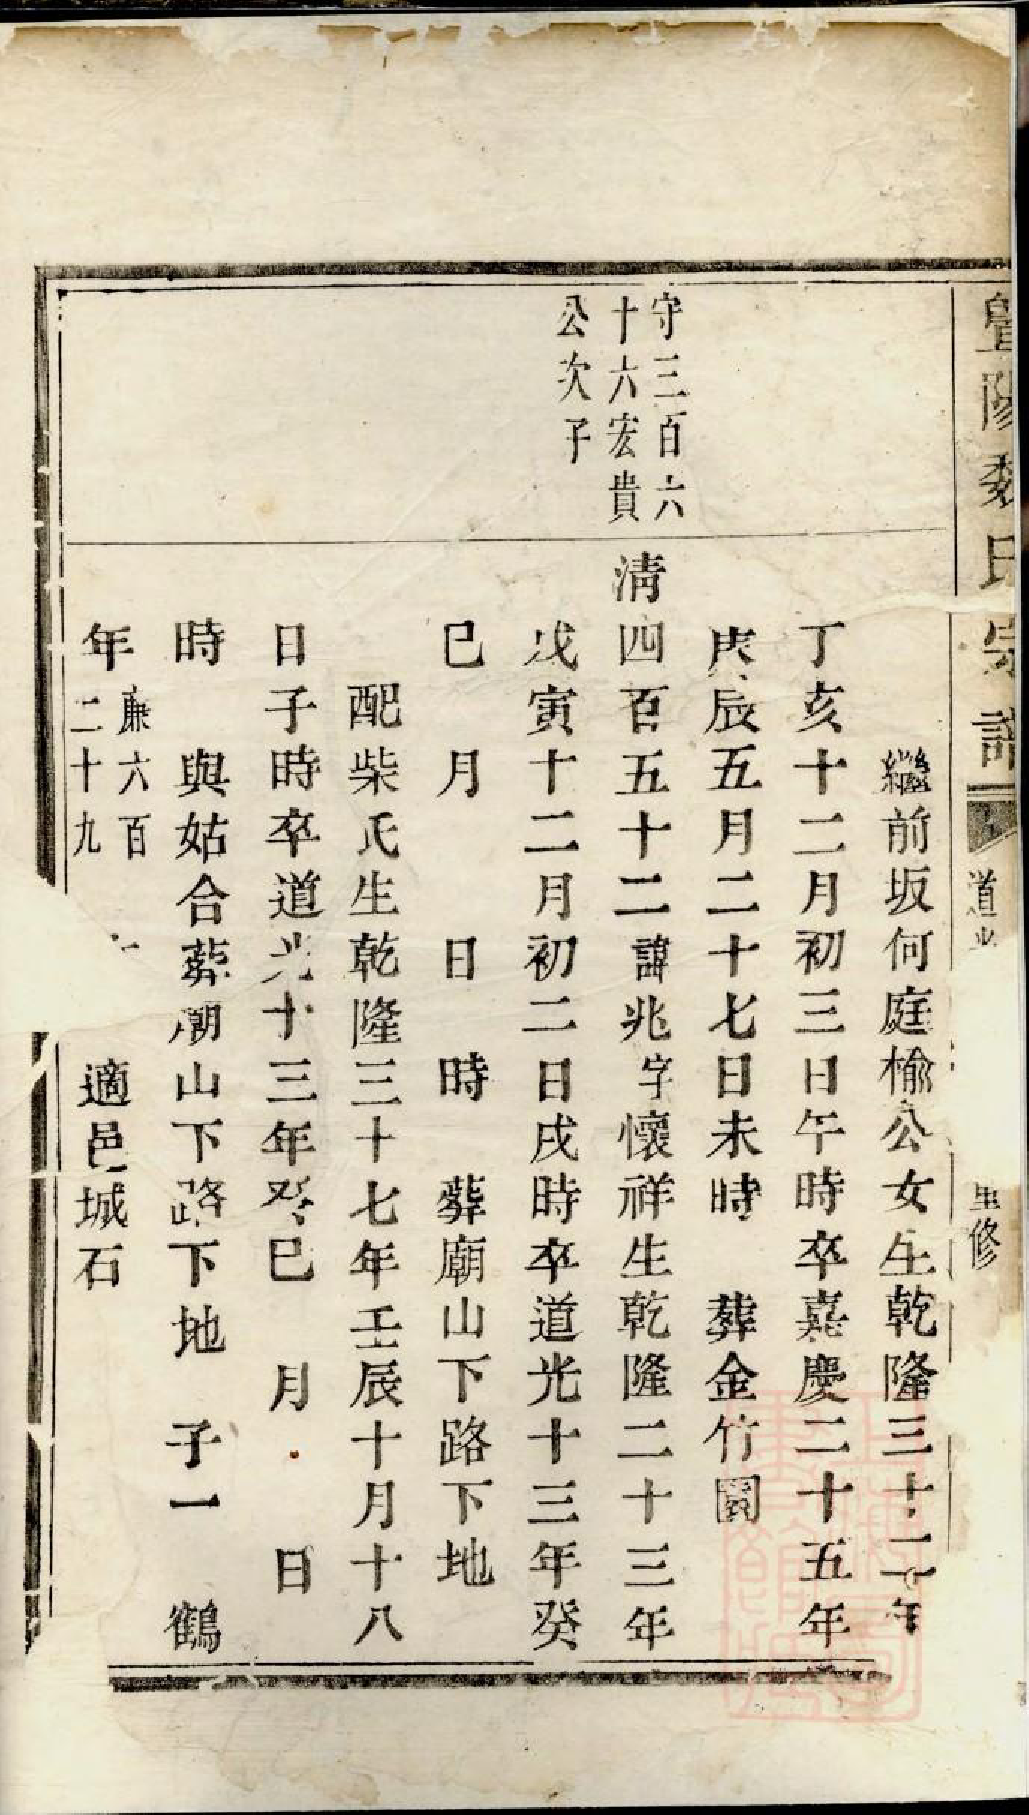 暨陽魏氏宗譜
道光
重修
繼前坂何庭榆公女生乾隆三十二年
丁亥十二月初三日午時卒嘉慶二十五年
庚辰五月二十七日未時 葬金竹園
守三百六
十六宏貴
公次子
清四百五十二諱兆字懷祥生乾隆二十三年
戊寅十二月初二日戌時卒道光十三年癸
巳 月 日 時 葬廟山下路下地
配柴氏生乾隆三十七年壬辰十月十八
日子時卒道光十三年癸巳 月 日
時 與姑合葬廟山下路下地 子一 鶴
年 廉六百
二十九
適邑城石